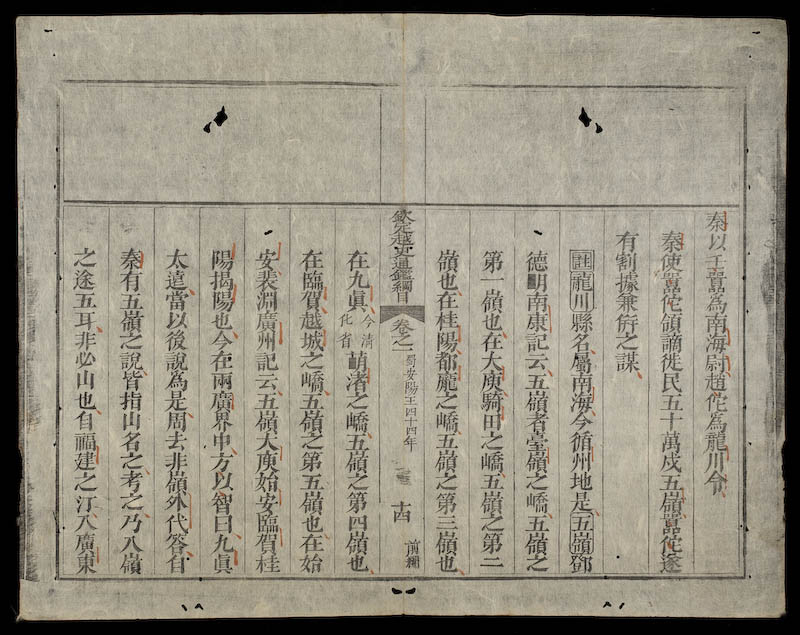 秦以任囂為南海尉趙佗為龍川令
秦使囂佗領謫徙民五十萬戍五嶺囂佗遂
有割據兼併之謀
註龍川縣名屬南海今循州地是五嶺鄧
德明南康記云五嶺者臺嶺之嶠五嶺之
第一嶺也在大庾騎田之嶠五嶺之第二
嶺也在桂陽都龐之嶠五嶺之第三嶺也
欽定越史通鑑綱目 卷之一 蜀安陽王四十四年 十四 前編
在九眞今清化省萌渚之嶠五嶺之第四嶺也
在臨賀越城之嶠五嶺之第五嶺也在始
安裴淵廣州記云五嶺大庾始安臨賀桂
陽揭陽也今在兩廣界中方以智曰九眞
太遠當以後說為是周去非嶺外代答自
秦有五嶺之說皆指山名之考之乃入嶺
之途五耳非必山也自福建之汀入廣東